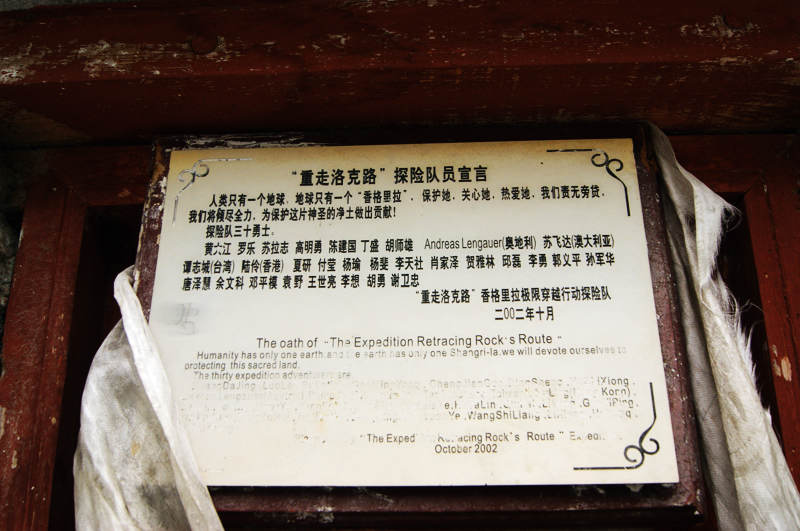 “重走洛克路”探险队员宣言
人类只有一个地球，地球只有一个“香格里拉”，保护她，关心她，热爱她，我们责无旁贷，
我们将倾尽全力，为保护这片神圣的净土做出贡献！
探险队三十勇士：
黄六江 罗乐 苏拉志 高明勇 陈建国 丁盛 胡师雄 Andreas Lengauer(奥地利) 苏飞达(澳大利亚)
谭志城(台湾) 陆伶(香港) 夏研 付莹 杨瑜 杨斐 李天社 肖家泽 贺雅林 邱磊 李勇 郭义平 孙军华
唐泽慧 余文科 邓平模 袁野 王世亮 李想 胡勇 谢卫忠
“重走洛克路”香格里拉极限穿越行动探险队
二00二年十月
The oath of "The Expedition Retracing Rock's Route"
Humanity has only one earth,and the earth has only one Shangri-la.we will devote ourselves to
protecting this sacred land.
The thirty expedition adventurers are
Korn).
WangShiLiang
"The Retracing Rock's Route"
October 2002